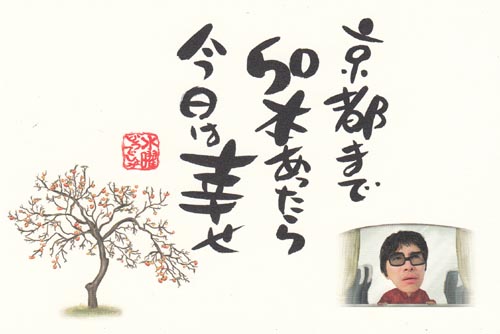 京都まで
50本あったら
今日は幸せ
水曜
どうでしょう